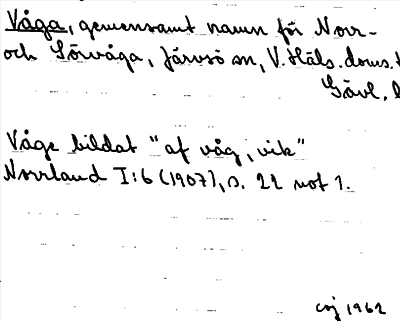 Våga, gemensamt namn för Norr-
och Sörvåga, Järvsö sn, V. Häls. doms.
Gävl.
Våge bildat "af våg, vik"
Norrland I:6 (1907), s. 22 not 1.
1962